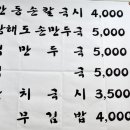 안동손칼국시 4,000
황해도손만두국 5,000
만두 5,000
국 5,000
치국시 3,500
무김밥 4,000